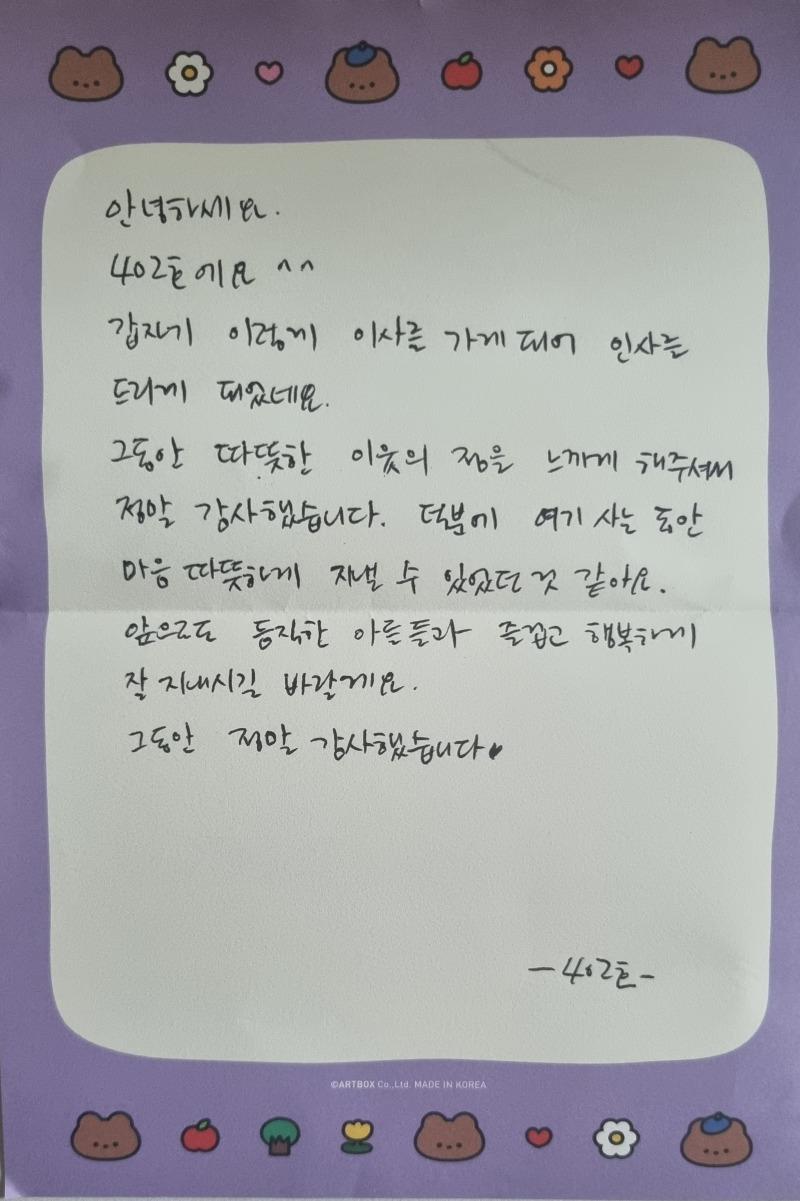 안녕하세요.
402호에요 ^^
갑자기 이렇게 이사를 가게 되어 인사를
드리게 되었네요.
그동안 따뜻한 이웃의 정을 느끼게 해주셔서
정말 감사했습니다. 덕분에 여기 사는 동안
마음 따뜻하게 지낼 수 있었던 것 같아요.
앞으로도 듬직한 아들들과 즐겁고 행복하게
잘 지내시길 바랄게요.
그동안 정말 감사했습니다
-402호-
©ARTBOX Co.,Ltd. MADE IN KOREA